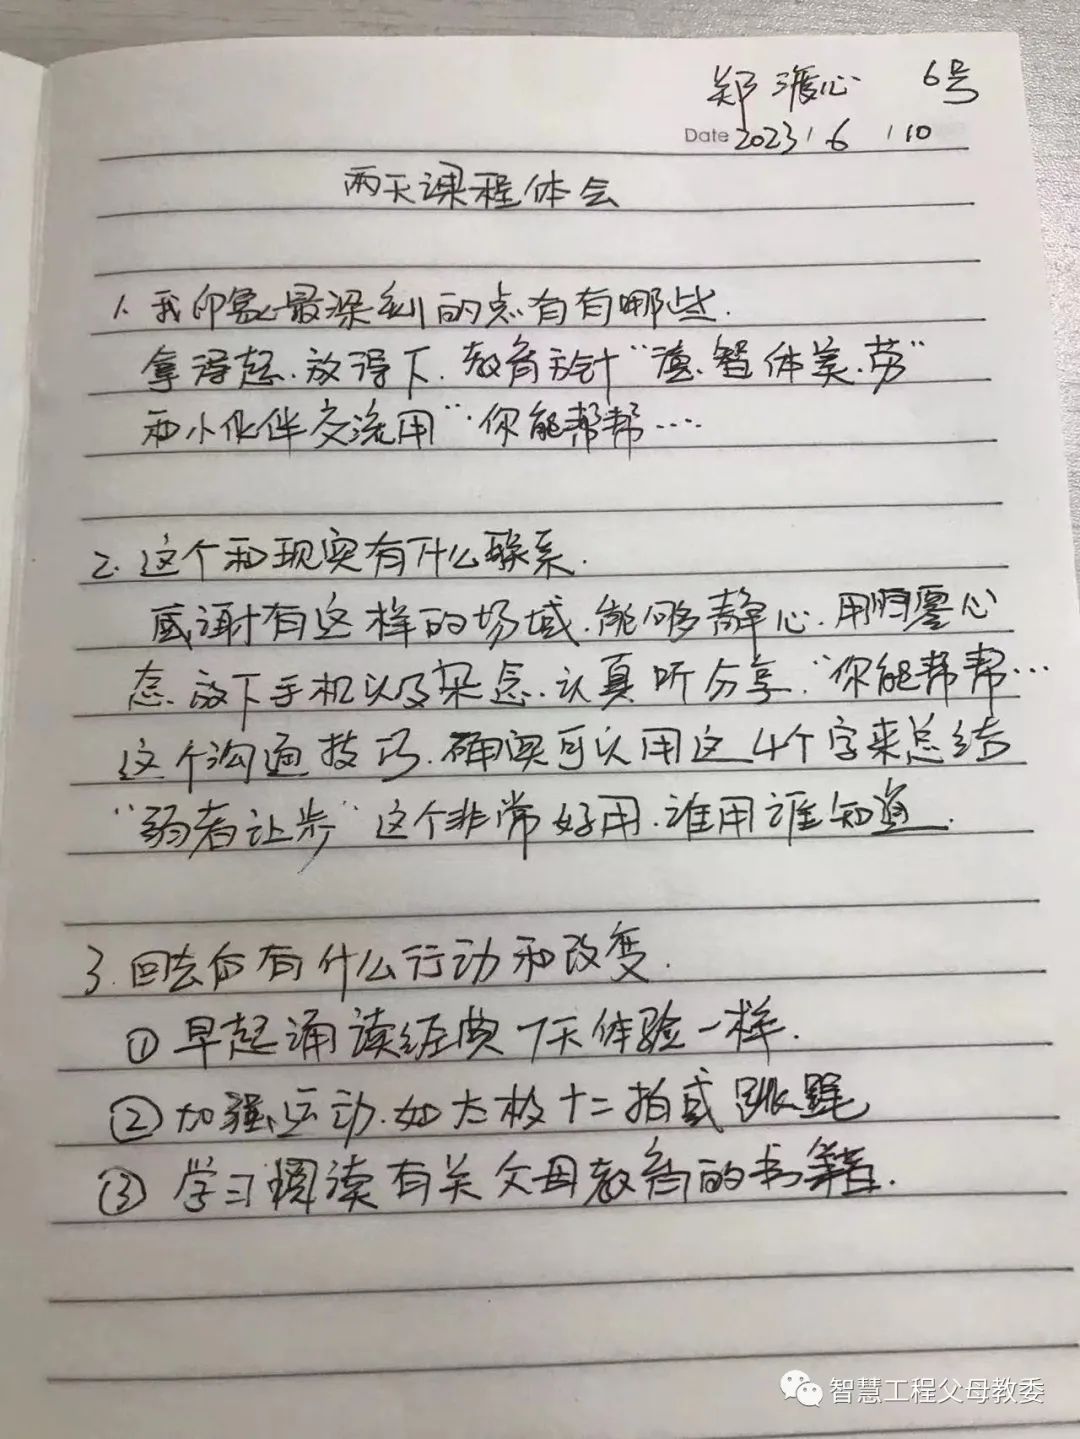 郑 心 6号
Date 2023 / 6 / 10
两天课程体会
1. 我印象最深刻的点有有哪些.
拿得起.放得下.教育方针“德.智体美.劳”
和小伙伴交流用“你能帮帮....
2. 这个和现实有什么联系.
感谢有这样的场域.能够静心.用归零心
态.放下手机以及杂念.认真听分享.“你能帮帮...
这个沟通技巧.确实可以用这4个字来总结
“弱者让步”这个非常好用.谁用谁知道.
3. 回去后有什么行动和改变.
①早起诵读经典 7天体验一样.
②加强运动.如太极十二拍或跳绳
③学习阅读有关父母教育的书籍.
智慧工程父母教委